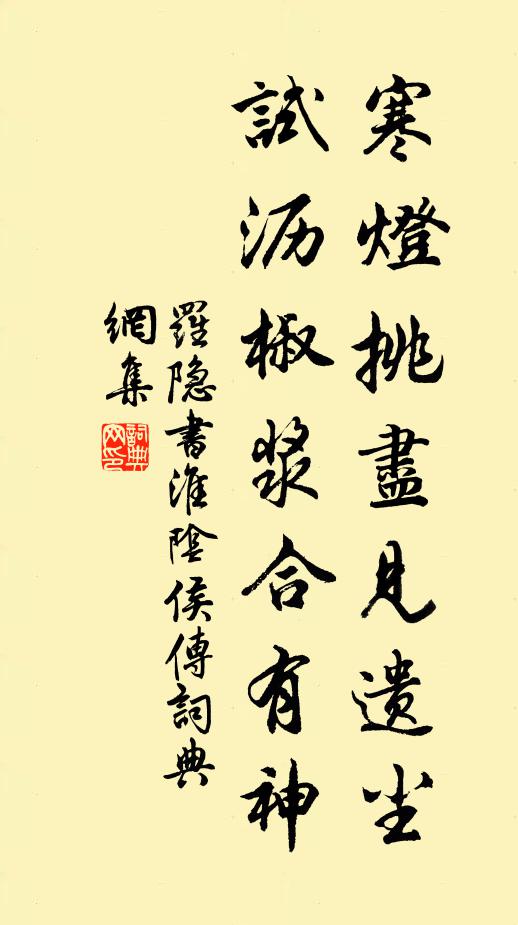 寒燈挑盡見遺尘
試沥椒漿合有神
羅隐書淮陰侯傳詞典
網集
詞典網印